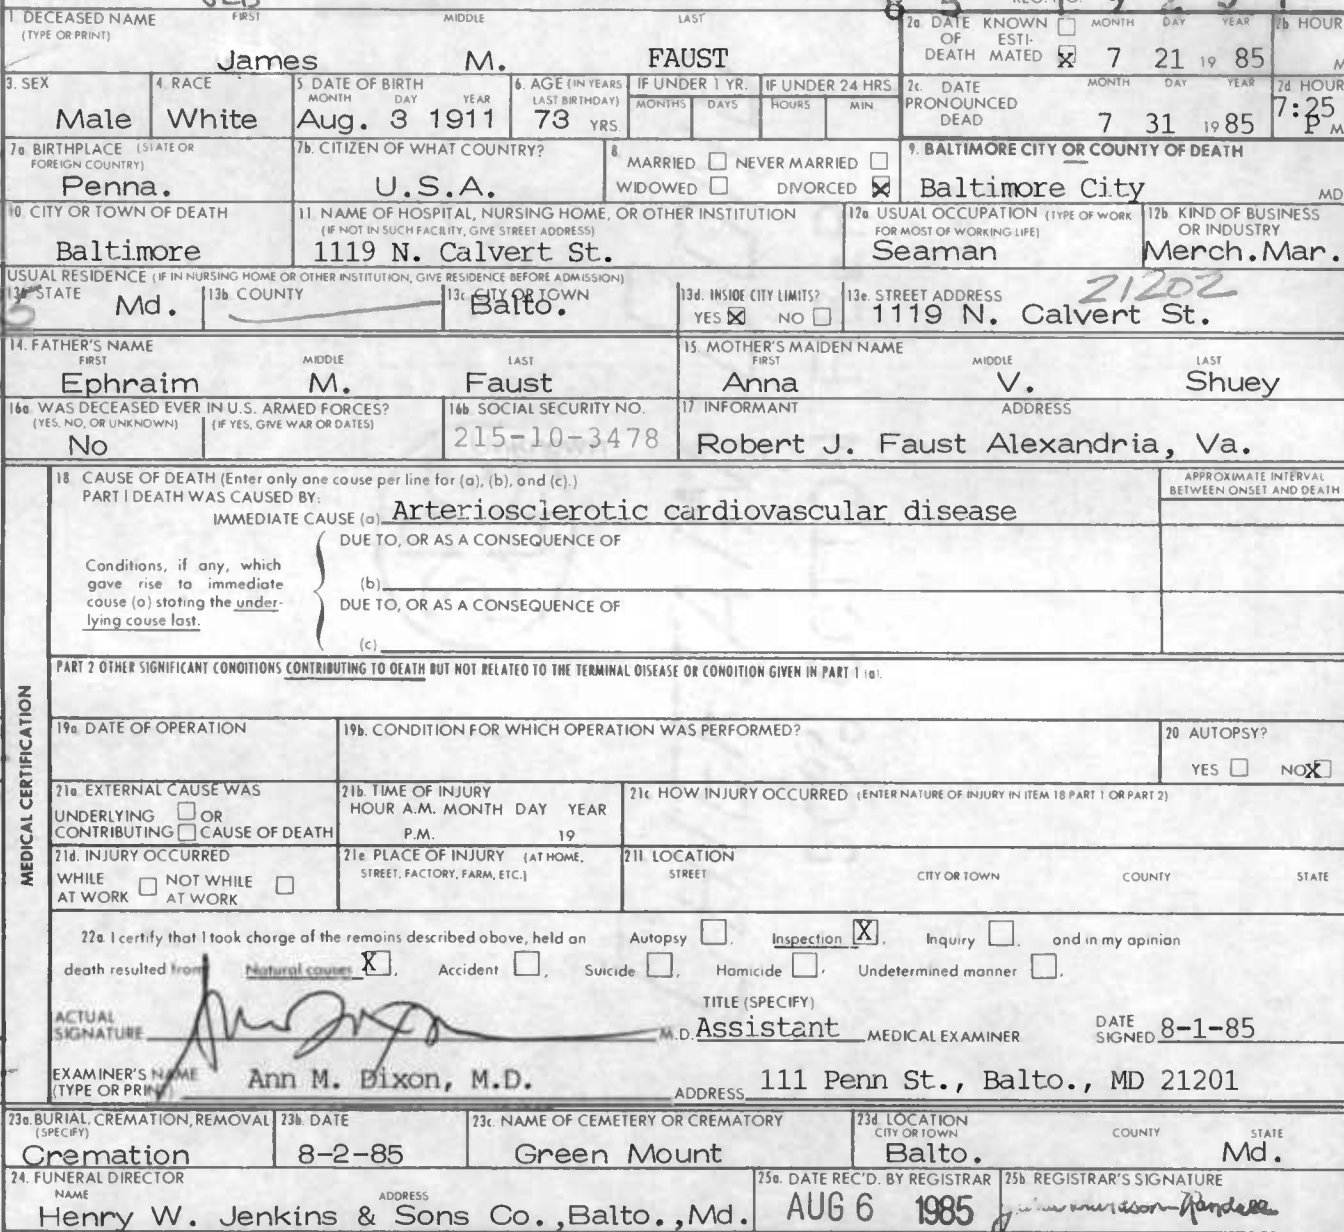 1 DECEASED NAME FIRST MIDDLE LAST
(TYPE OR PRINT)
James M. FAUST
2a DATE KNOWN OF ESTI- DEATH MATED X MONTH DAY YEAR 7 21 19 85
2b HOUR M
3. SEX Male
4. RACE White
5 DATE OF BIRTH
MONTH DAY YEAR
Aug. 3 1911
6. AGE (IN YEARS LAST BIRTHDAY) 73 YRS.
IF UNDER 1 YR. MONTHS DAYS
IF UNDER 24 HRS HOURS MIN.
2c. DATE PRONOUNCED DEAD MONTH DAY YEAR 7 31 19 85
2d HOUR 7:25 P M
7a BIRTHPLACE (STATE OR FOREIGN COUNTRY)
Penna.
7b. CITIZEN OF WHAT COUNTRY?
U.S.A.
8 MARRIED NEVER MARRIED
WIDOWED DIVORCED X
9. BALTIMORE CITY OR COUNTY OF DEATH
Baltimore City MD
10. CITY OR TOWN OF DEATH
Baltimore
11. NAME OF HOSPITAL, NURSING HOME, OR OTHER INSTITUTION
(IF NOT IN SUCH FACILITY, GIVE STREET ADDRESS)
1119 N. Calvert St.
12a USUAL OCCUPATION (TYPE OF WORK FOR MOST OF WORKING LIFE)
Seaman
12b. KIND OF BUSINESS OR INDUSTRY
Merch.Mar.
USUAL RESIDENCE (IF IN NURSING HOME OR OTHER INSTITUTION, GIVE RESIDENCE BEFORE ADMISSION)
STATE Md.
13b COUNTY
13c. CITY OR TOWN
Balto.
13d. INSIDE CITY LIMITS?
YES X NO
13e. STREET ADDRESS 21202
1119 N. Calvert St.
14. FATHER'S NAME
FIRST MIDDLE LAST
Ephraim M. Faust
15. MOTHER'S MAIDEN NAME
FIRST MIDDLE LAST
Anna V. Shuey
16a WAS DECEASED EVER IN U.S. ARMED FORCES?
(YES, NO, OR UNKNOWN) (IF YES, GIVE WAR OR DATES)
No
16b. SOCIAL SECURITY NO.
215-10-3478
17 INFORMANT ADDRESS
Robert J. Faust Alexandria, Va.
MEDICAL CERTIFICATION
18. CAUSE OF DEATH (Enter only one cause per line for (a), (b), and (c).)
PART I DEATH WAS CAUSED BY:
APPROXIMATE INTERVAL
BETWEEN ONSET AND DEATH
IMMEDIATE CAUSE (a) Arteriosclerotic cardiovascular disease
DUE TO, OR AS A CONSEQUENCE OF
Conditions, if any, which
gave rise to immediate (b)
cause (a) stating the under- DUE TO, OR AS A CONSEQUENCE OF
lying cause last.
(c)
PART 2 OTHER SIGNIFICANT CONDITIONS CONTRIBUTING TO DEATH BUT NOT RELATED TO THE TERMINAL DISEASE OR CONDITION GIVEN IN PART 1 (a).
19a DATE OF OPERATION
19b. CONDITION FOR WHICH OPERATION WAS PERFORMED?
20 AUTOPSY?
YES NO X
21a. EXTERNAL CAUSE WAS
UNDERLYING OR
CONTRIBUTING CAUSE OF DEATH
21b. TIME OF INJURY
HOUR A.M. MONTH DAY YEAR
P.M. 19
21c HOW INJURY OCCURRED (ENTER NATURE OF INJURY IN ITEM 18 PART 1 OR PART 2)
21d. INJURY OCCURRED
WHILE AT WORK NOT WHILE AT WORK
21e PLACE OF INJURY (AT HOME, STREET, FACTORY, FARM, ETC.)
21f. LOCATION
STREET CITY OR TOWN COUNTY STATE
22a. I certify that I took charge of the remains described above, held an Autopsy , Inspection X , Inquiry , and in my opinion
death resulted from Natural causes X , Accident , Suicide , Homicide , Undetermined manner .
TITLE (SPECIFY)
ACTUAL SIGNATURE M.D. Assistant MEDICAL EXAMINER DATE SIGNED 8-1-85
EXAMINER'S NAME (TYPE OR PRINT) Ann M. Dixon, M.D. ADDRESS 111 Penn St., Balto., MD 21201
23a. BURIAL, CREMATION, REMOVAL (SPECIFY)
Cremation
23b. DATE
8-2-85
23c. NAME OF CEMETERY OR CREMATORY
Green Mount
23d LOCATION
CITY OR TOWN COUNTY STATE
Balto. Md.
24. FUNERAL DIRECTOR
NAME ADDRESS
Henry W. Jenkins & Sons Co.,Balto.,Md.
25a. DATE REC'D. BY REGISTRAR
AUG 6 1985
25b. REGISTRAR'S SIGNATURE